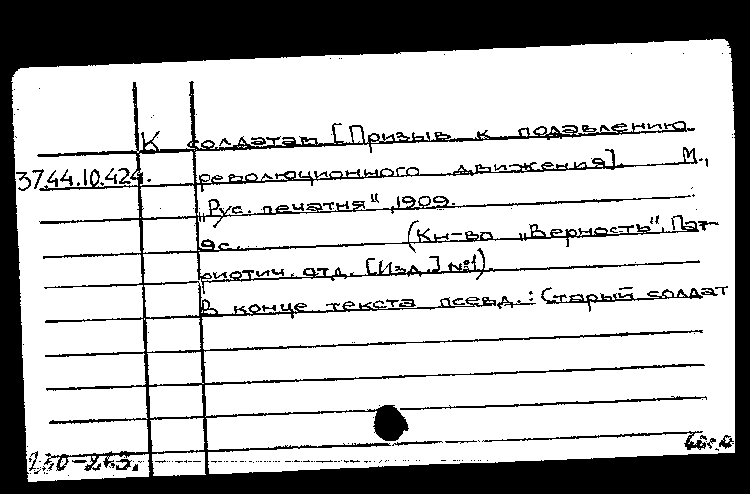 К солдатам [Призыв к подавлению
37.44.10.424. революционного движения]. М.,
„Рус. печатня", 1909.
9с. (Кн-во „Верность". Пат-
риотич. отд. [Изд.] №1).
В конце текста псевд.: Старый солдат
250-263.